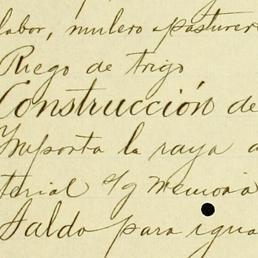 labor, mulero pasturero
Riego de trigo
Construcción de
Importa la raya a
terial s/g memoria
Saldo para igua